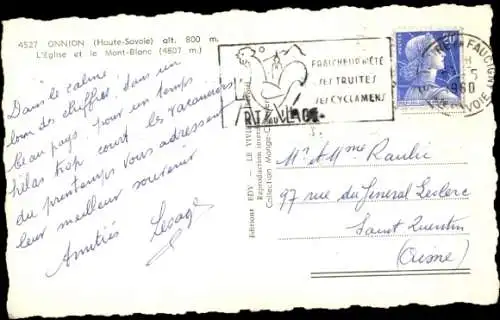 4527 ONNION (Haute-Savoie) alt. 800 m.
L'Eglise et le Mont-Blanc (4807 m.)
Dans le calme
loin des chiffres, dans un
beau pays, pour un temps
hélas trop court, les vacanciers
du printemps vous adressent
leur meilleur souvenir
Amitiés Lesage
Editions EDY - LE VIV
Reproduction inter
Collection Marige-C
FRAICHEUR D'ÉTÉ
SES TRUITES
SES CYCLAMENS
FAUCIGNY
1960
SAVOIE
20F
Mr et Mme Raulin
97 rue du General Leclerc
Saint Quentin
(Aisne)